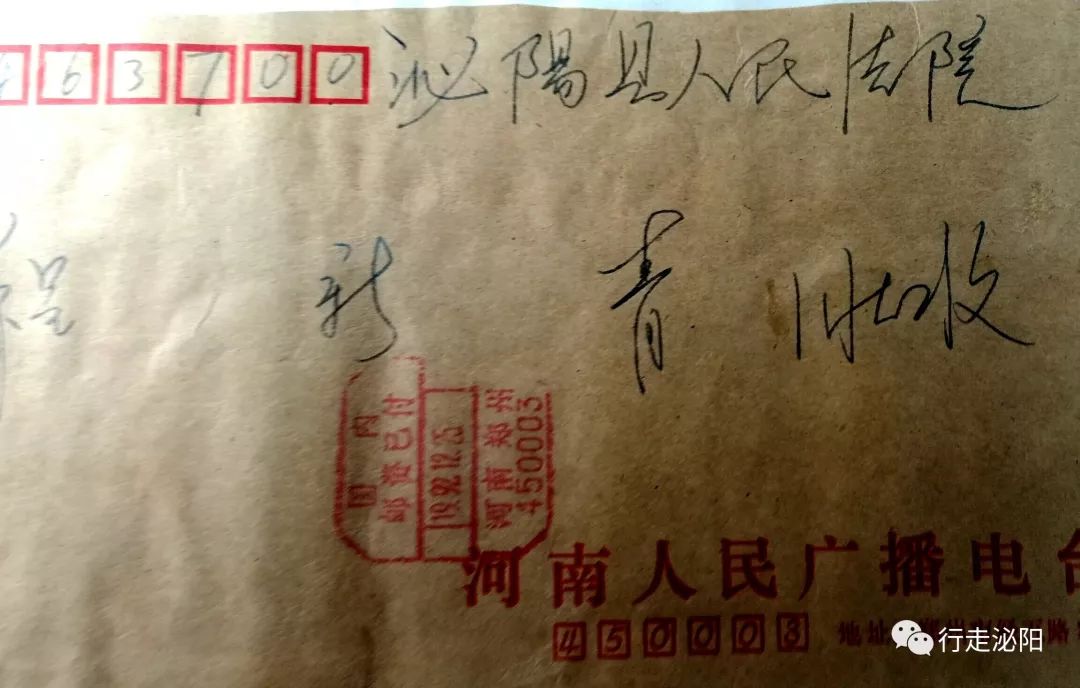 463700 泌陽县人民法院
程新青 收
国内
邮资已付
1992.12.25
河南 郑州
450003
河南人民广播电台
450003 地址
行走泌阳